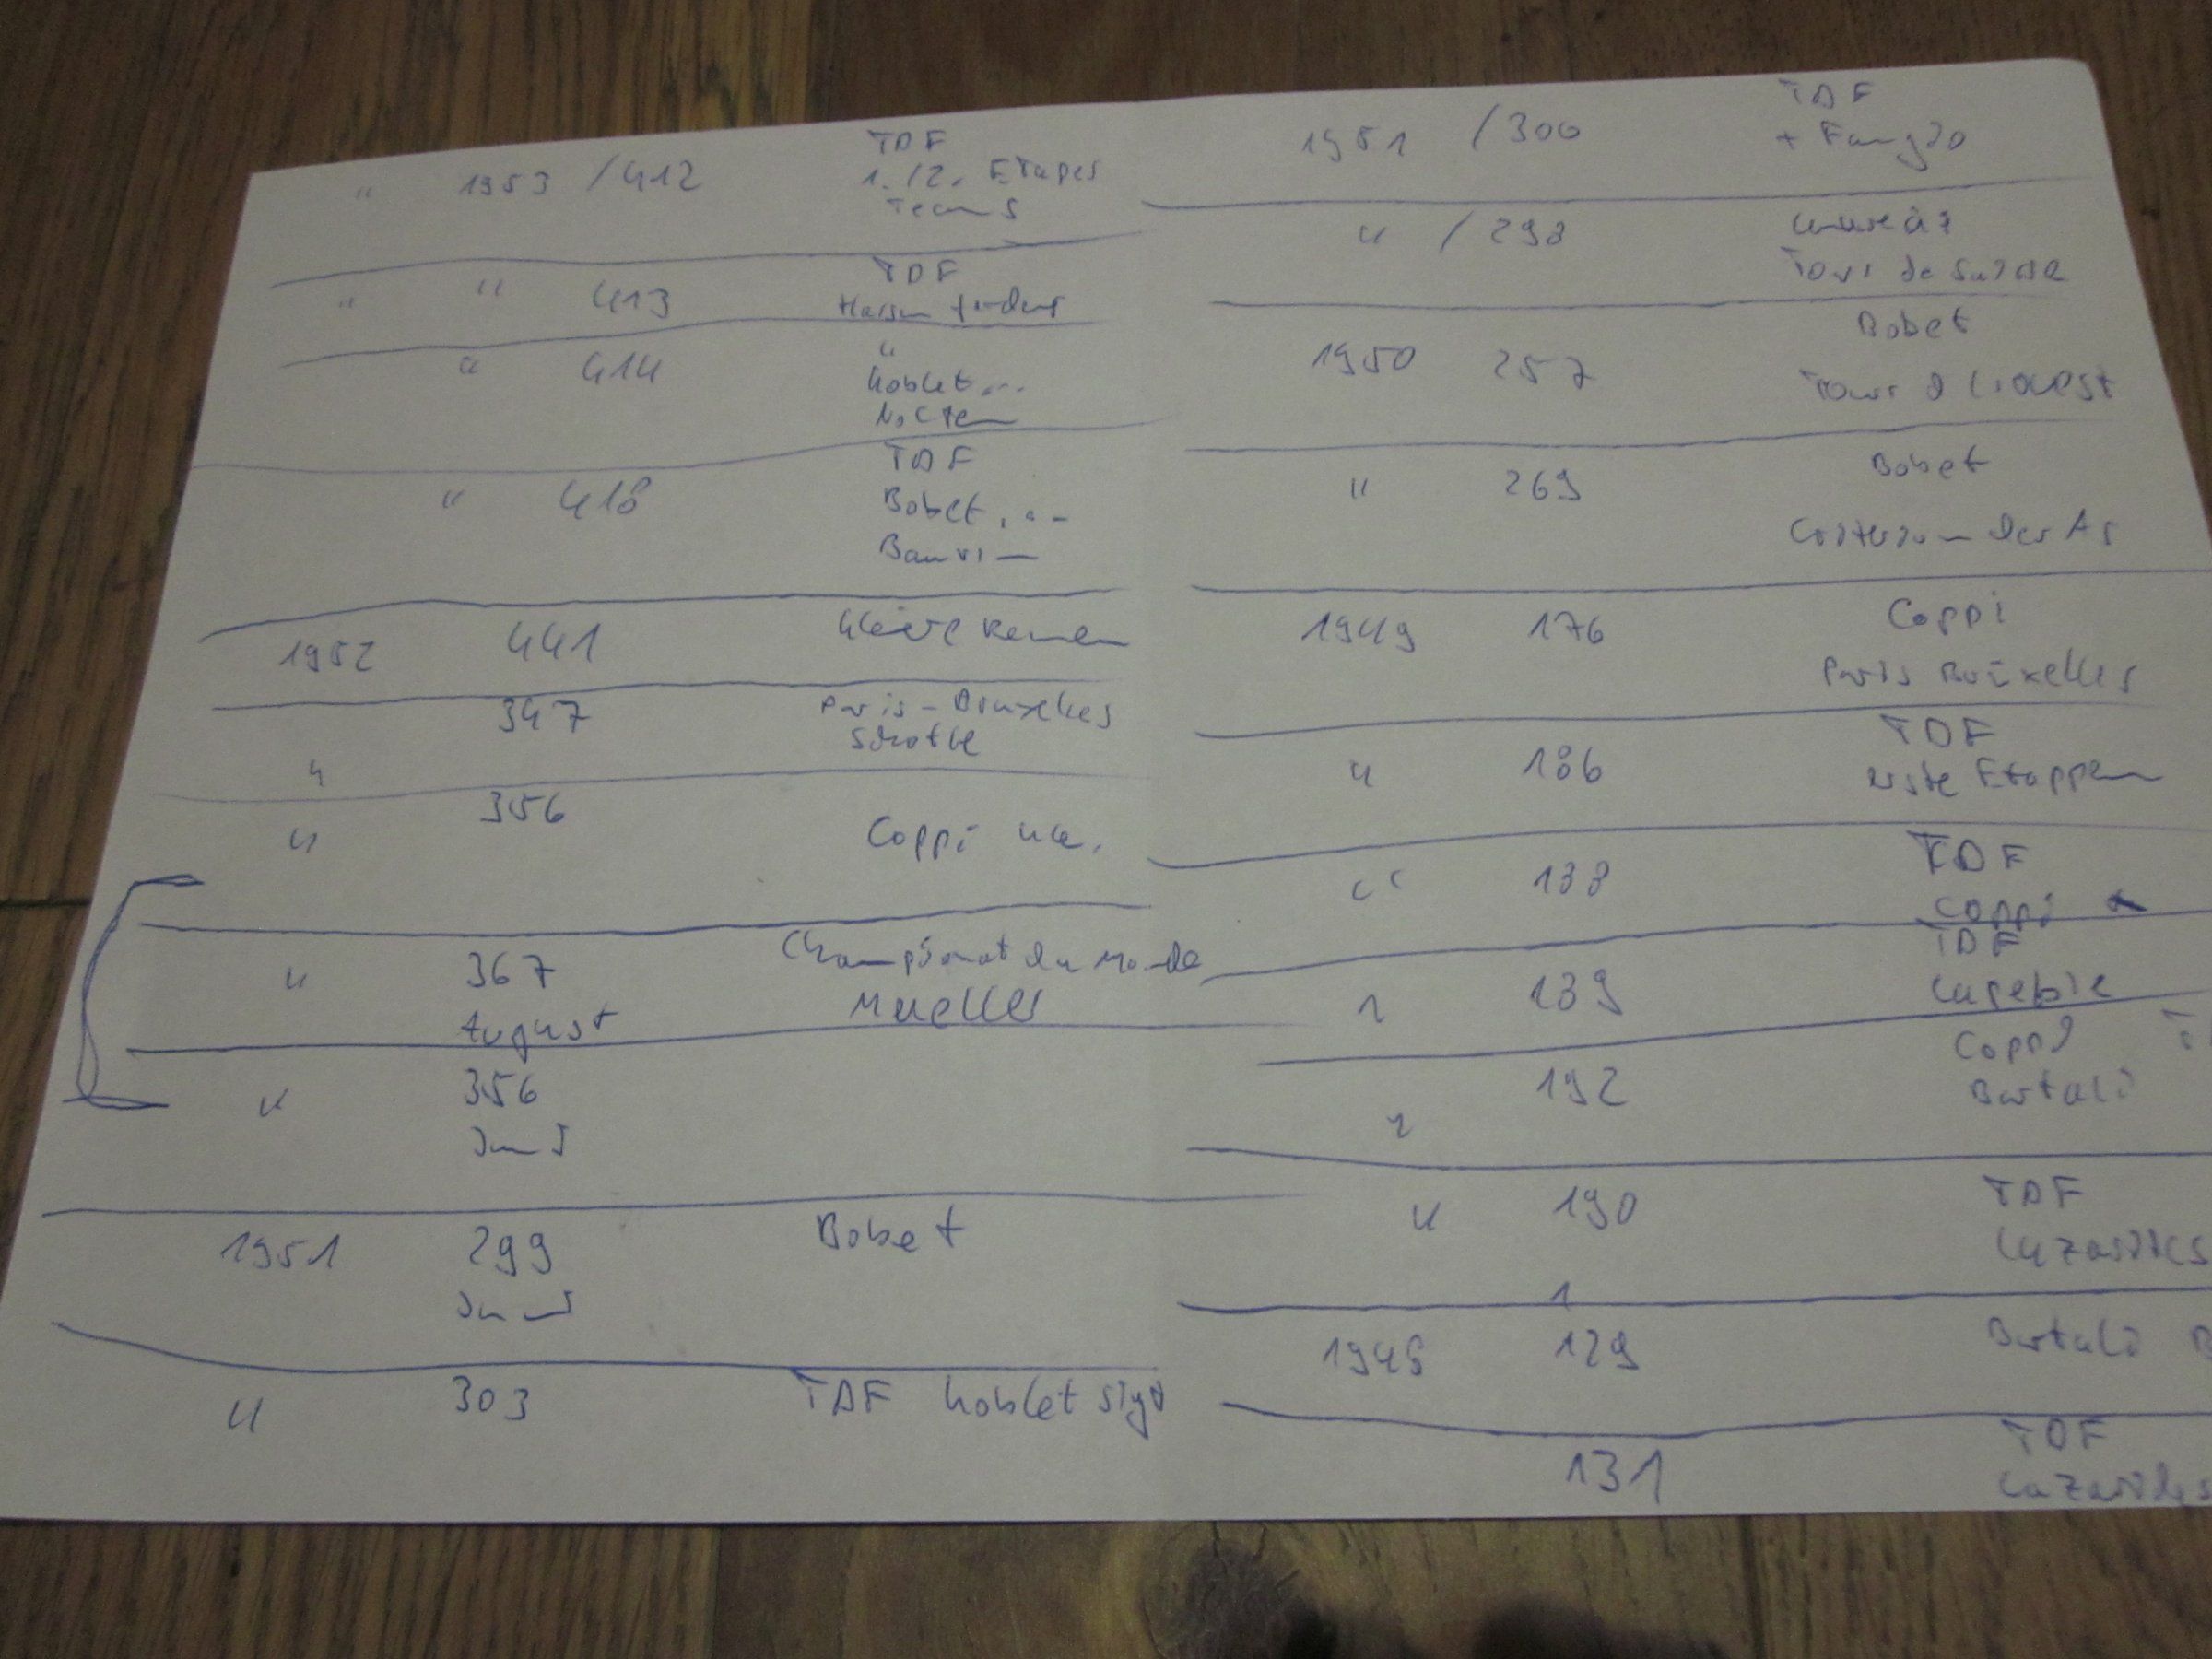 " 1953 /412 TDF
1./2. Etapes
Teams
" " 413 TDF
" 414 "
Koblet...
TDF
" 418
Bobet, ..
1952 441 kleine Rennen
347 Paris-Bruxelles
"
356
" Coppi
" 367 Championat du Monde
August Mueller
" 356
Juni
1951 299 Bobet
Juni
" 303 TDF Koblet sigt
1951 /300 TDF
+ Fangio
" / 298
Tour de Suisse
1950 257 Bobet
Tour d l'ouest
" 269 Bobet
Criterium des As
1949 176 Coppi
Paris Bruxelles
" 186 TDF
erste Etappen
" 188 TDF
Coppi
" 189 TDF
Lapebie
192 Coppi
" Bartali
" 190 TDF
Lazarides
1948 129 Bartali
131 TDF
Lazarides